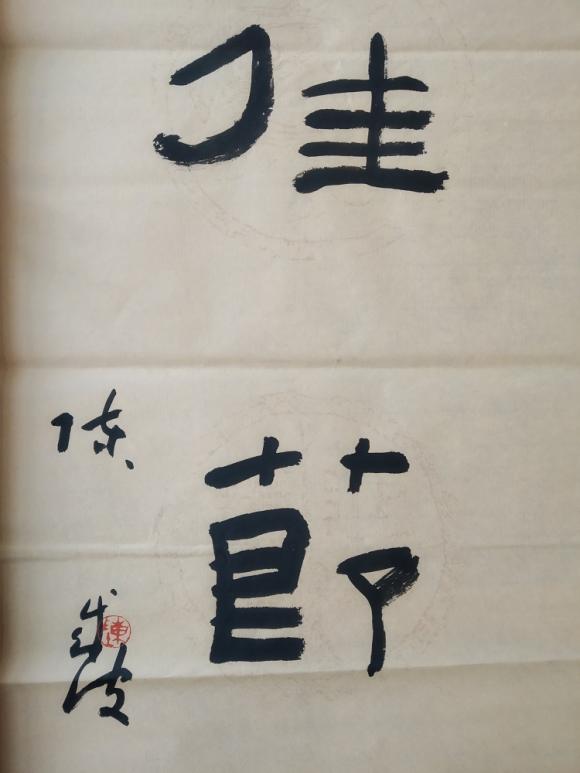 佳節
陈波
陳